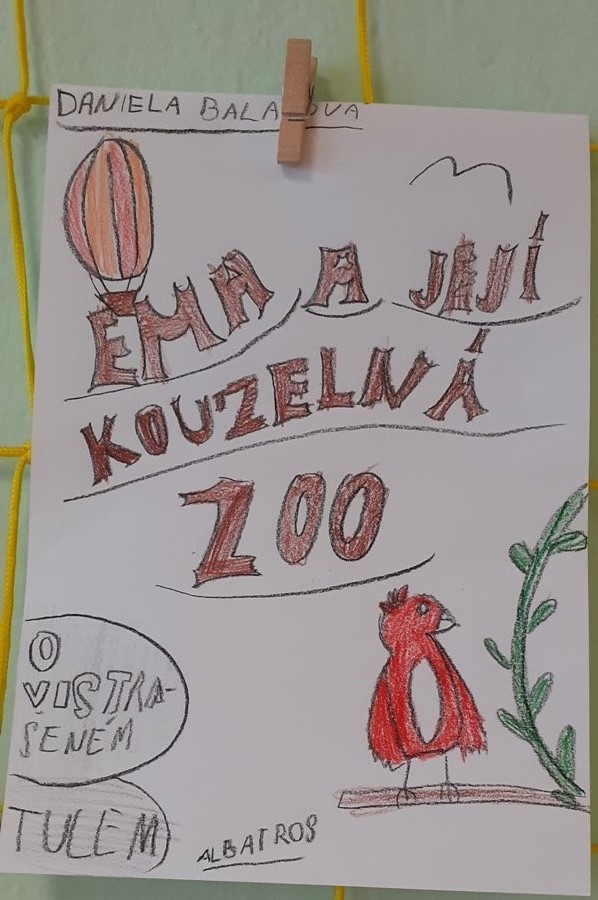 DANIELA
EMA A JEJÍ
KOUZELNÁ
ZOO
O
VISTRA-
ŠENÉM
TULEM
ALBATROS